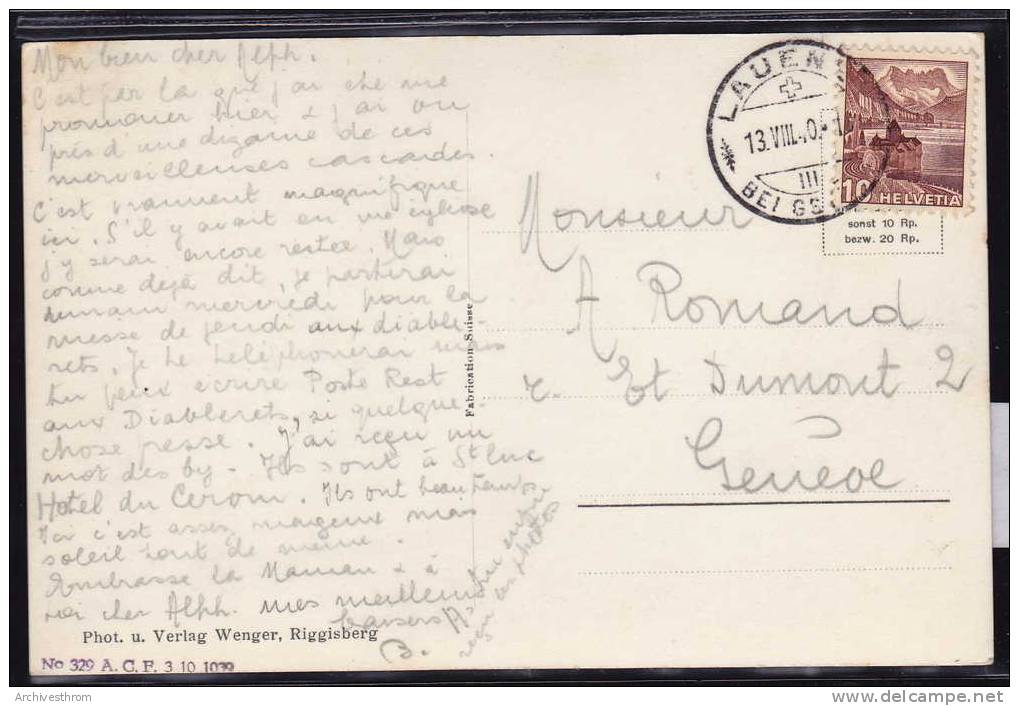 Mon bien cher Alph.
C'est par la que j'ai été me
promener hier & j'ai vu
près d'une dizaine de ces
merveilleuses cascades.
C'est vraiment magnifique
ici. S'il y avait eu une église
j'y serai encore restée. Mais
comme déjà dit, je partirai
demain mercredi pour la
messe de jeudi aux Diable-
rets. Je te téléphonerai mais
tu peux écrire Poste Rest
aux Diablerets, si quelque-
chose presse. J'ai reçu un
mot des by. Ils sont à St Luc
Hotel du Cervin. Ils ont beau temps
Ici c'est assez nuageux mais
soleil tout de même.
Embrasse la Maman & à
toi cher Alph. mes meilleurs
baisers
B.
As-tu enfin
reçu les photos
Phot. u. Verlag Wenger, Riggisberg
No 329 A. C. F. 3 10 1039
Fabrication Suisse
LAUEN
13.VIII.40.
III
BEI GS
10 HELVETIA
sonst 10 Rp.
bezw. 20 Rp.
Monsieur
A Romand
r. Et Dumont 2
Genève
Archivesthrom